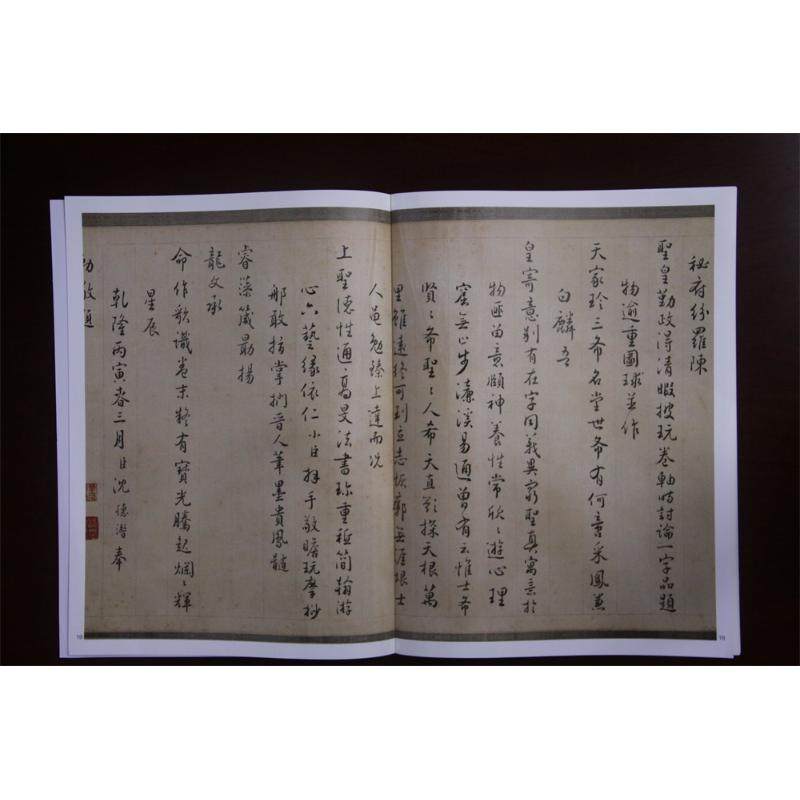 秘府紛羅陳
聖皇勤政得清暇披玩卷軸時討論一字品題
物逾重圖球並作
天家珍三希名堂世希有何啻采鳳兼
白麟吾
皇寄意別有在字同義異窮聖真寓意於
物匪留意頤神養性常欣〻遊心理
窟無止步濂溪易通曾有云惟士希
賢〻希聖〻人希天直欲探天根萬
里雖遠終可到立志恢廓無涯垠士
人尚勉臻上達而況
上聖德性通高旻法書珍重極簡翰游
心六藝緣依仁小臣拜手敬瞻玩摩抄
那敢指掌捫晉人筆墨貴鳳髓
睿藻箴勗揚
龍文承
命作歌識卷末終有寶光騰起爛〻輝
星辰
乾隆丙寅春三月臣沈德潛奉
勅敬題
18
19